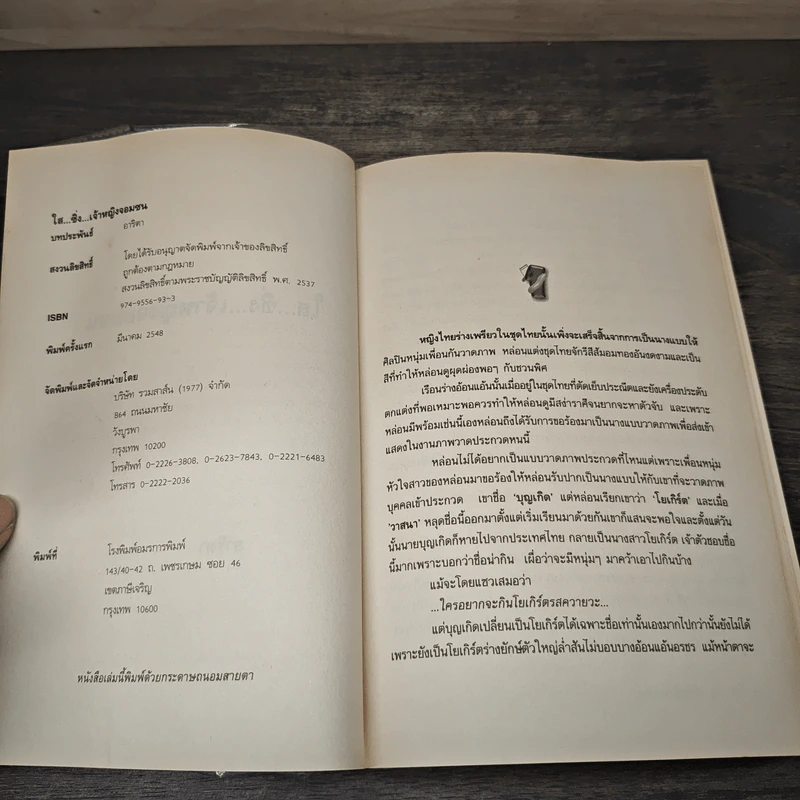 ใส...ซิ่ง...เจ้าหญิงจอมซน
บทประพันธ์ อาริตา
สงวนลิขสิทธิ์ โดยได้รับอนุญาตจัดพิมพ์จากเจ้าของลิขสิทธิ์
ถูกต้องตามกฎหมาย
สงวนลิขสิทธิ์ตามพระราชบัญญัติลิขสิทธิ์ พ.ศ. 2537
ISBN 974-9556-93-3
พิมพ์ครั้งแรก มีนาคม 2548
จัดพิมพ์และจัดจำหน่ายโดย
บริษัท รวมสาส์น (1977) จำกัด
864 ถนนมหาชัย
วังบูรพา
กรุงเทพ 10200
โทรศัพท์ 0-2226-3808, 0-2623-7843, 0-2221-6483
โทรสาร 0-2222-2036
พิมพ์ที่ โรงพิมพ์อมรการพิมพ์
143/40-42 ถ. เพชรเกษม ซอย 46
เขตภาษีเจริญ
กรุงเทพ 10600
หนังสือเล่มนี้พิมพ์ด้วยกระดาษถนอมสายตา
1
หญิงไทยร่างเพรียวในชุดไทยนั้นเพิ่งจะเสร็จสิ้นจากการเป็นนางแบบให้
ศิลปินหนุ่มเพื่อนกันวาดภาพ หล่อนแต่งชุดไทยจักรีสีส้มอมทองอันงดงามและเป็น
สีที่ทำให้หล่อนดูผุดผ่องพอๆ กับชวนพิศ
เรือนร่างอ้อนแอ้นนั้นเมื่ออยู่ในชุดไทยที่ตัดเย็บประณีตและยังเครื่องประดับ
ตกแต่งที่พอเหมาะพอควรทำให้หล่อนดูมีสง่าราศีจนยากจะหาตัวจับ และเพราะ
หล่อนมีพร้อมเช่นนี้เองหล่อนถึงได้รับการขอร้องมาเป็นนางแบบวาดภาพเพื่อส่งเข้า
แสดงในงานภาพวาดประกวดหนนี้
หล่อนไม่ได้อยากเป็นแบบวาดภาพประกวดที่ไหนแต่เพราะเพื่อนหนุ่ม
หัวใจสาวของหล่อนมาขอร้องให้หล่อนรับปากเป็นนางแบบให้กับเขาที่จะวาดภาพ
บุคคลเข้าประกวด เขาชื่อ ‘บุญเกิด’ แต่หล่อนเรียกเขาว่า ‘โยเกิร์ต’ และเมื่อ
‘วาสนา’ หลุดชื่อนี้ออกมาตั้งแต่เริ่มเรียนมาด้วยกันเขาก็แสนจะพอใจและตั้งแต่วัน
นั้นนายบุญเกิดก็หายไปจากประเทศไทย กลายเป็นนางสาวโยเกิร์ต เจ้าตัวชอบชื่อ
นี้มากเพราะบอกว่าชื่อน่ากิน เผื่อว่าจะมีหนุ่มๆ มาคว้าเอาไปกินบ้าง
แม้จะโดยแซวเสมอว่า
...ใครอยากจะกินโยเกิร์ตรสควายวะ...
แต่บุญเกิดเปลี่ยนเป็นโยเกิร์ตได้เฉพาะชื่อเท่านั้นเองมากไปกว่านั้นยังไม่ได้
เพราะยังเป็นโยเกิร์ตร่างยักษ์ตัวใหญ่ล่ำสันไม่บอบบางอ้อนแอ้นอรชร แม้หน้าตาจะ